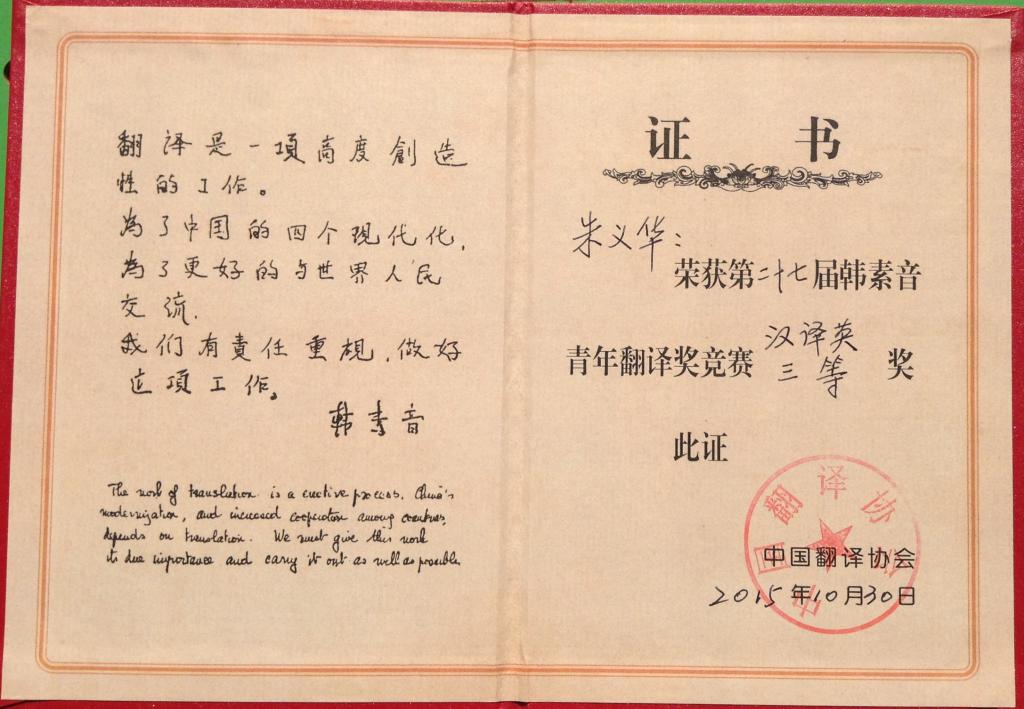 翻译是一項高度創造
性的工作。
为了中国的四个現代化,
为了更好的与世界人民
交流.
我们有責任重視,做好
这項工作。
韩素音
The work of translation is a creative process. China's
modernization, and increased cooperation among countries,
depends on translation. We must give this work
its due importance and carry it out as well as possible.
证 书
朱义华:
荣获第二十七届韩素音
青年翻译奖竞赛 汉译英
三等 奖
此证
中国翻译协会
中国翻译协会
2015年10月30日